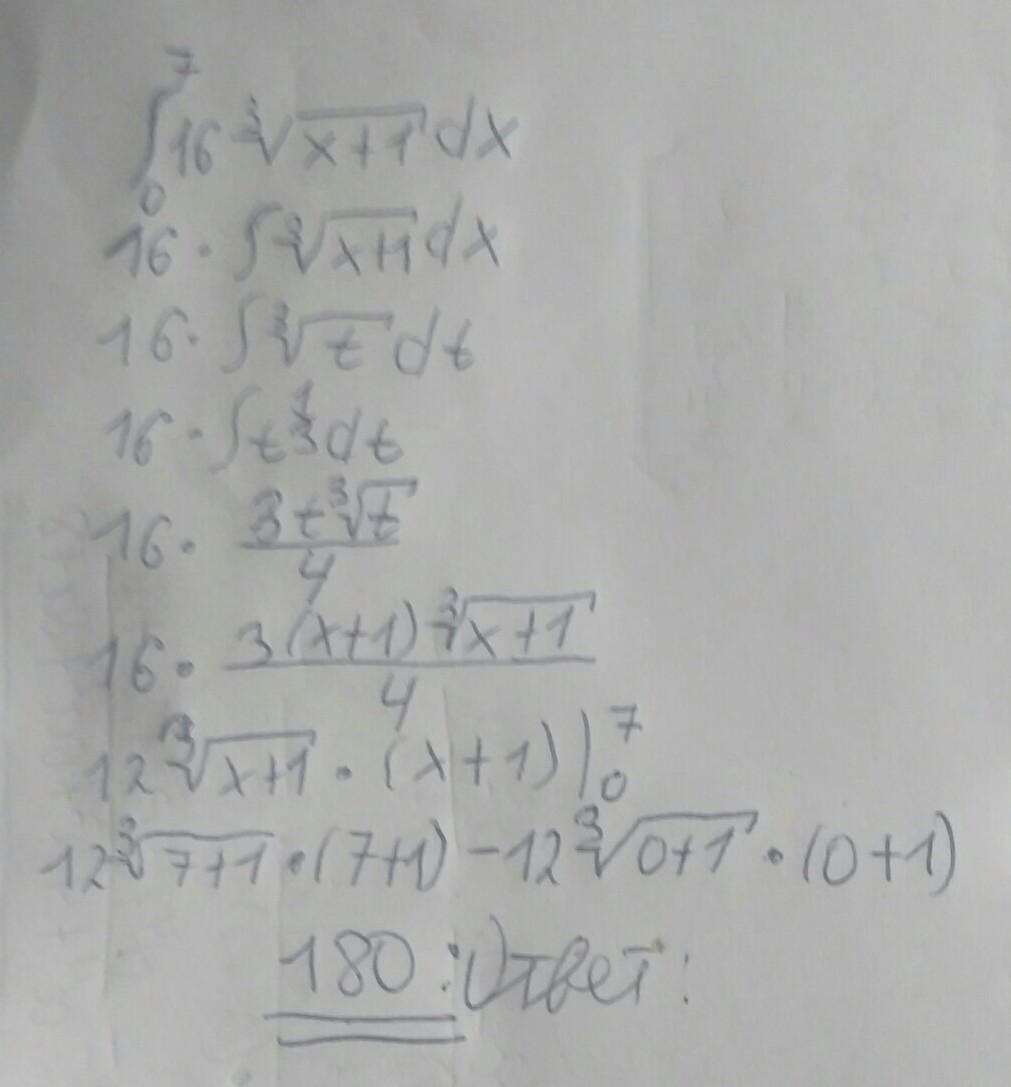 ∫₀⁷ 16 ∛(x+1) dx
16 · ∫ ∛(x+1) dx
16 · ∫ ∛t dt
16 · ∫ t^(1/3) dt
16 · (3t∛t)/4
16 · (3(x+1)∛(x+1))/4
12∛(x+1) · (x+1)|₀⁷
12∛(7+1) · (7+1) − 12∛(0+1) · (0+1)
180 : Ответ: